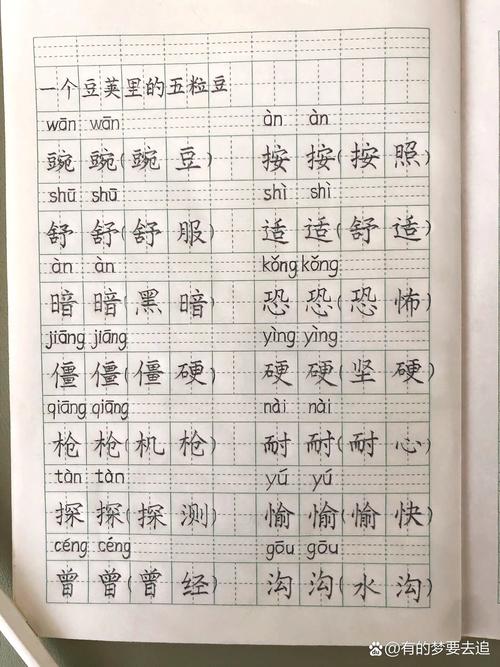 一个豆荚里的五粒豆
wān wān àn àn
豌豌(豌豆) 按按(按照)
shū shū shì shì
舒舒(舒服) 适适(舒适)
àn àn kǒng kǒng
暗暗(黑暗) 恐恐(恐怖)
jiāng jiāng yìng yìng
僵僵(僵硬) 硬硬(坚硬)
qiāng qiāng nài nài
枪枪(机枪) 耐耐(耐心)
tàn tàn yú yú
探探(探测) 愉愉(愉快)
céng céng gōu gōu
曾曾(曾经) 沟沟(水沟)
@有的梦要去追